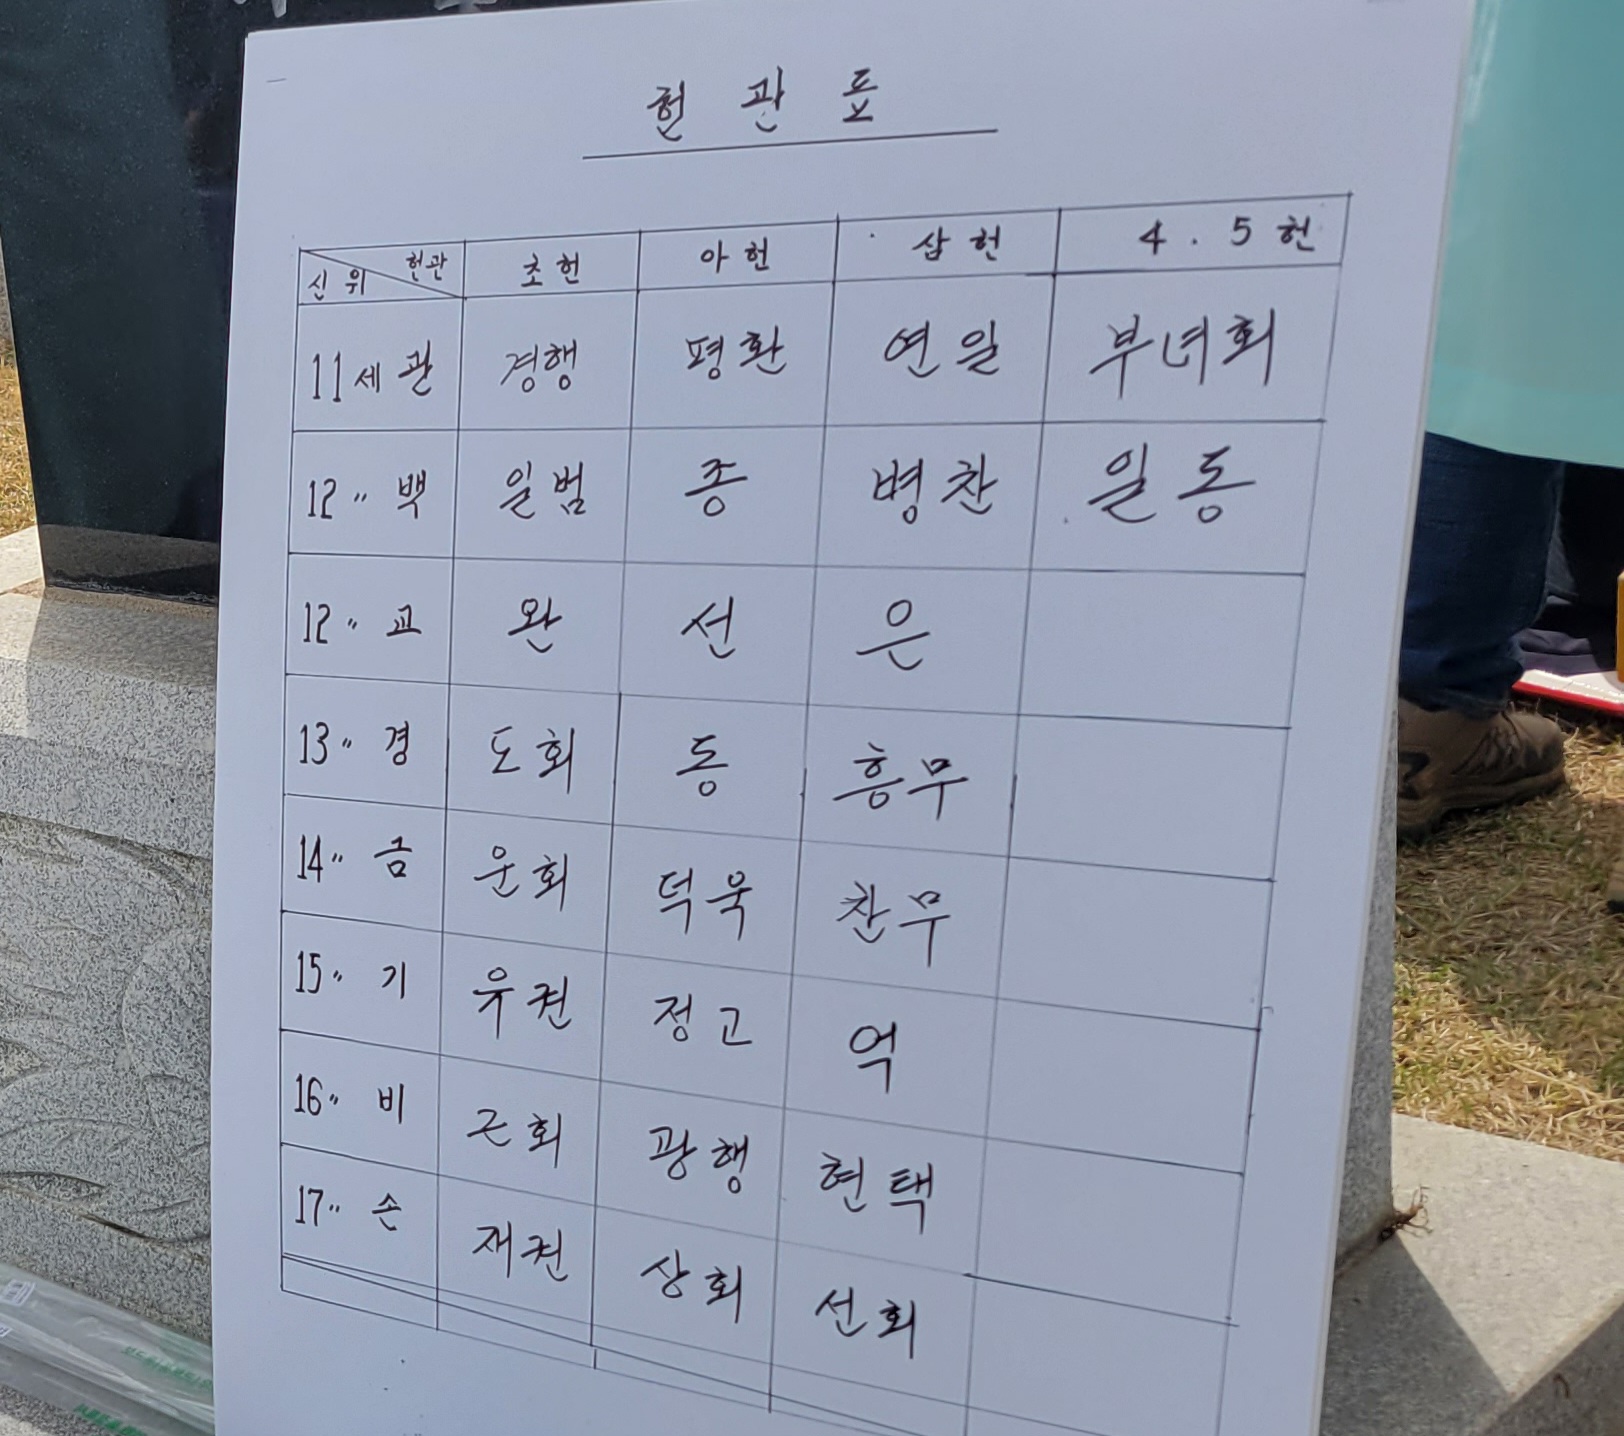 헌 관 표
신 위 헌관 초헌 아헌 삼헌 4 . 5 헌
11세 관 경행 평환 연일 부녀회
12〃 백 일범 종 병찬 일동
12〃 교 완 선 은
13〃 경 도회 동 흥무
14〃 금 운회 덕욱 찬무
15〃 기 우권 정고 억
16〃 비 근회 광행 현택
17〃 손 재권 상회 선회